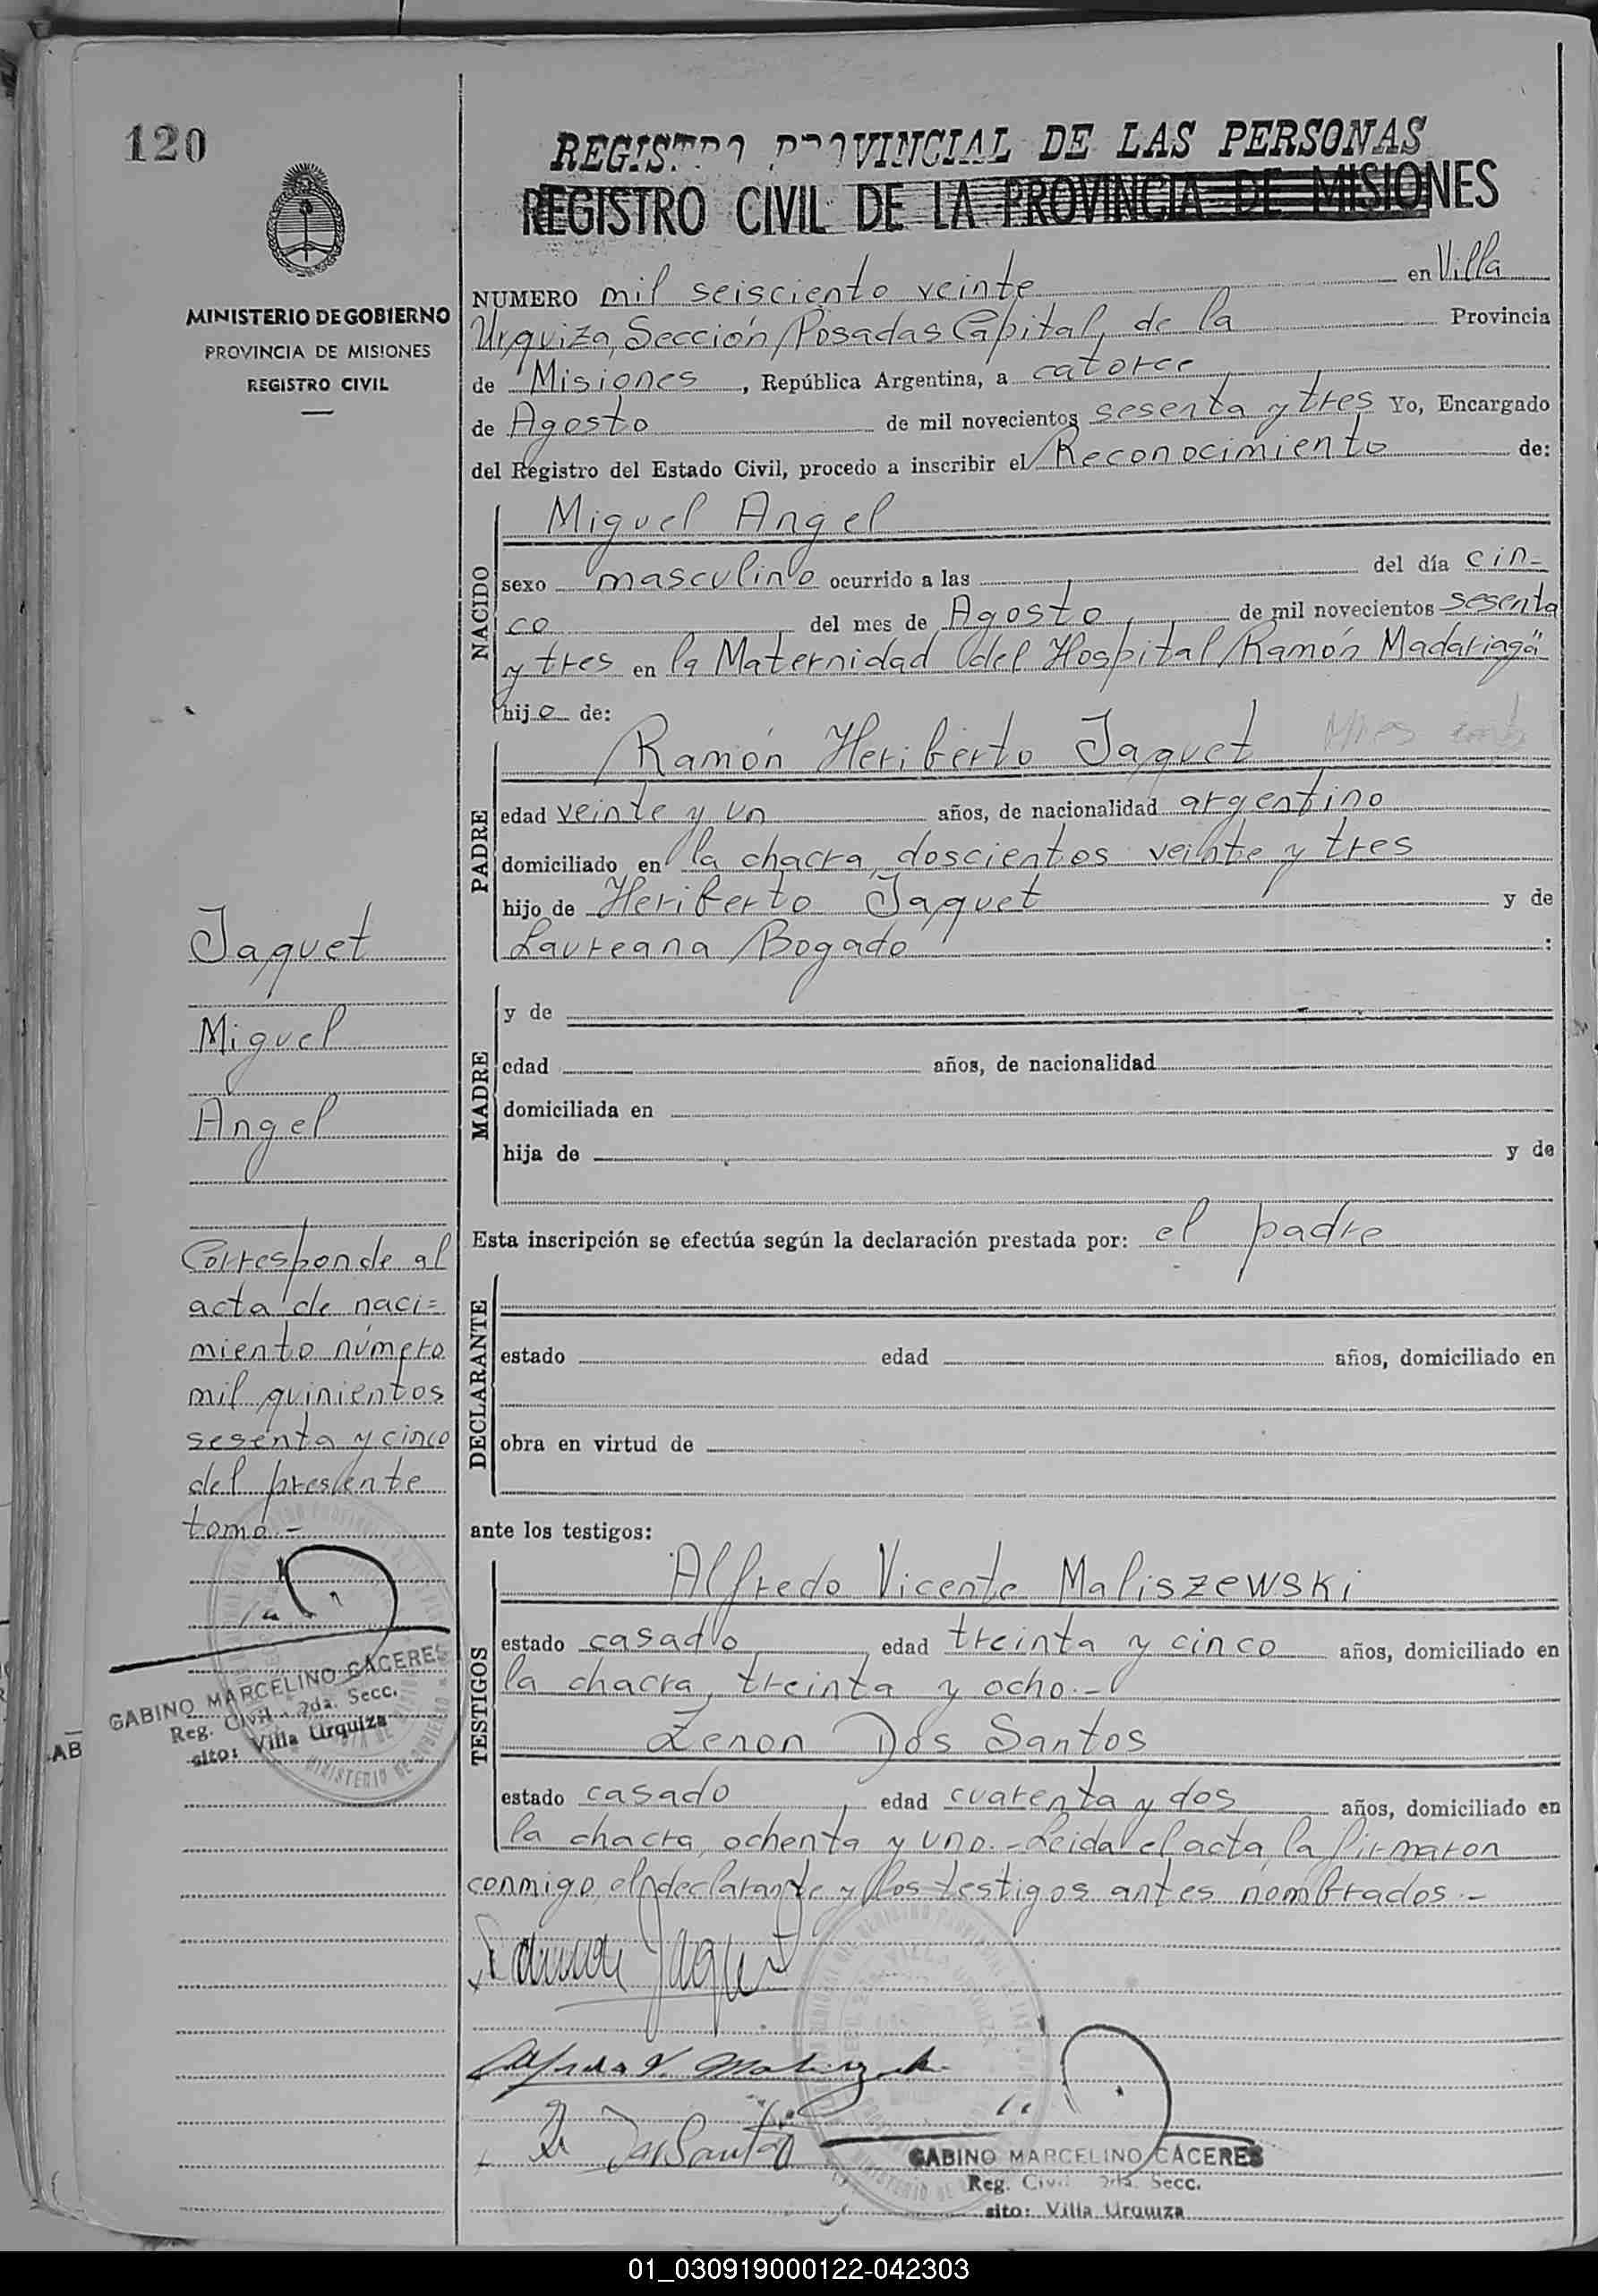 120
REGISTRO PROVINCIAL DE LAS PERSONAS
REGISTRO CIVIL DE LA PROVINCIA DE MISIONES
MINISTERIO DE GOBIERNO
PROVINCIA DE MISIONES
REGISTRO CIVIL
NUMERO mil seisciento veinte en Villa
Urquiza, Sección Posadas Capital, de la Provincia
de Misiones, República Argentina, a catorce
de Agosto de mil novecientos sesenta y tres Yo, Encargado
del Registro del Estado Civil, procedo a inscribir el Reconocimiento de:
NACIDO
Miguel Angel
sexo masculino ocurrido a las del día cin=
co del mes de Agosto de mil novecientos sesenta
y tres en la Maternidad del Hospital Ramón Madariaga"
hijo de:
PADRE
Ramón Heriberto Jaquet
edad veinte y un años, de nacionalidad argentino
domiciliado en la chacra doscientos veinte y tres
hijo de Heriberto Jaquet y de
Laureana Bogado :
MADRE
y de
edad años, de nacionalidad
domiciliada en
hija de y de
Esta inscripción se efectúa según la declaración prestada por: el padre
DECLARANTE
estado edad años, domiciliado en
obra en virtud de
ante los testigos:
TESTIGOS
Alfredo Vicente Maliszewski
estado casado edad treinta y cinco años, domiciliado en
la chacra, treinta y ocho.-
Zenon Dos Santos
estado casado edad cuarenta y dos años, domiciliado en
la chacra, ochenta y uno.- Leida el acta, la firmaron
conmigo, el declarante y los testigos antes nombrados.-
Ramon Jaquet
Alfredo V. Maliszewski
Z. Dos Santos
GABINO MARCELINO CÁCERES
Reg. Civil 2da. Secc.
sito: Villa Urquiza
Jaquet
Miguel
Angel
Corresponde al
acta de naci=
miento número
mil quinientos
sesenta y cinco
del presente
tomo.-
GABINO MARCELINO CÁCERES
Reg. Civil 2da. Secc.
sito: Villa Urquiza
AB
01_030919000122-042303